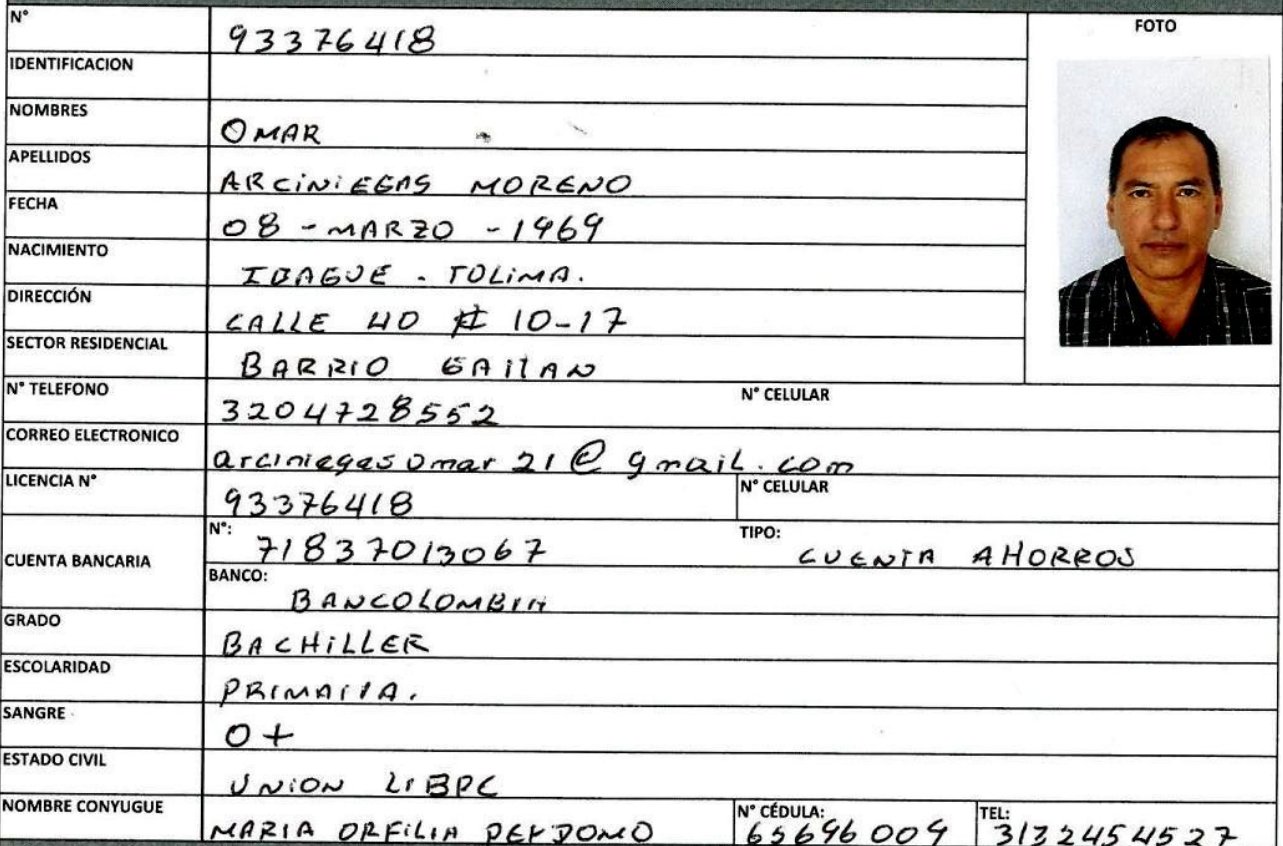 N° 93376418
FOTO
IDENTIFICACION
NOMBRES OMAR
APELLIDOS ARCINIEGAS MORENO
FECHA 08 - MARZO - 1969
NACIMIENTO IBAGUE - TOLIMA.
DIRECCIÓN CALLE 40 # 10-17
SECTOR RESIDENCIAL BARRIO GAITAN
N° TELEFONO 3204728552 N° CELULAR
CORREO ELECTRONICO arciniegasomar21@gmail.com
LICENCIA N° 93376418 N° CELULAR
CUENTA BANCARIA N°: 71837013067 TIPO: CUENTA AHORROS
BANCO: BANCOLOMBIA
GRADO BACHILLER
ESCOLARIDAD PRIMARIA.
SANGRE O+
ESTADO CIVIL UNION LIBRE
NOMBRE CONYUGUE MARIA ORFILIA PERDOMO N° CÉDULA: 65696009 TEL: 3132454527